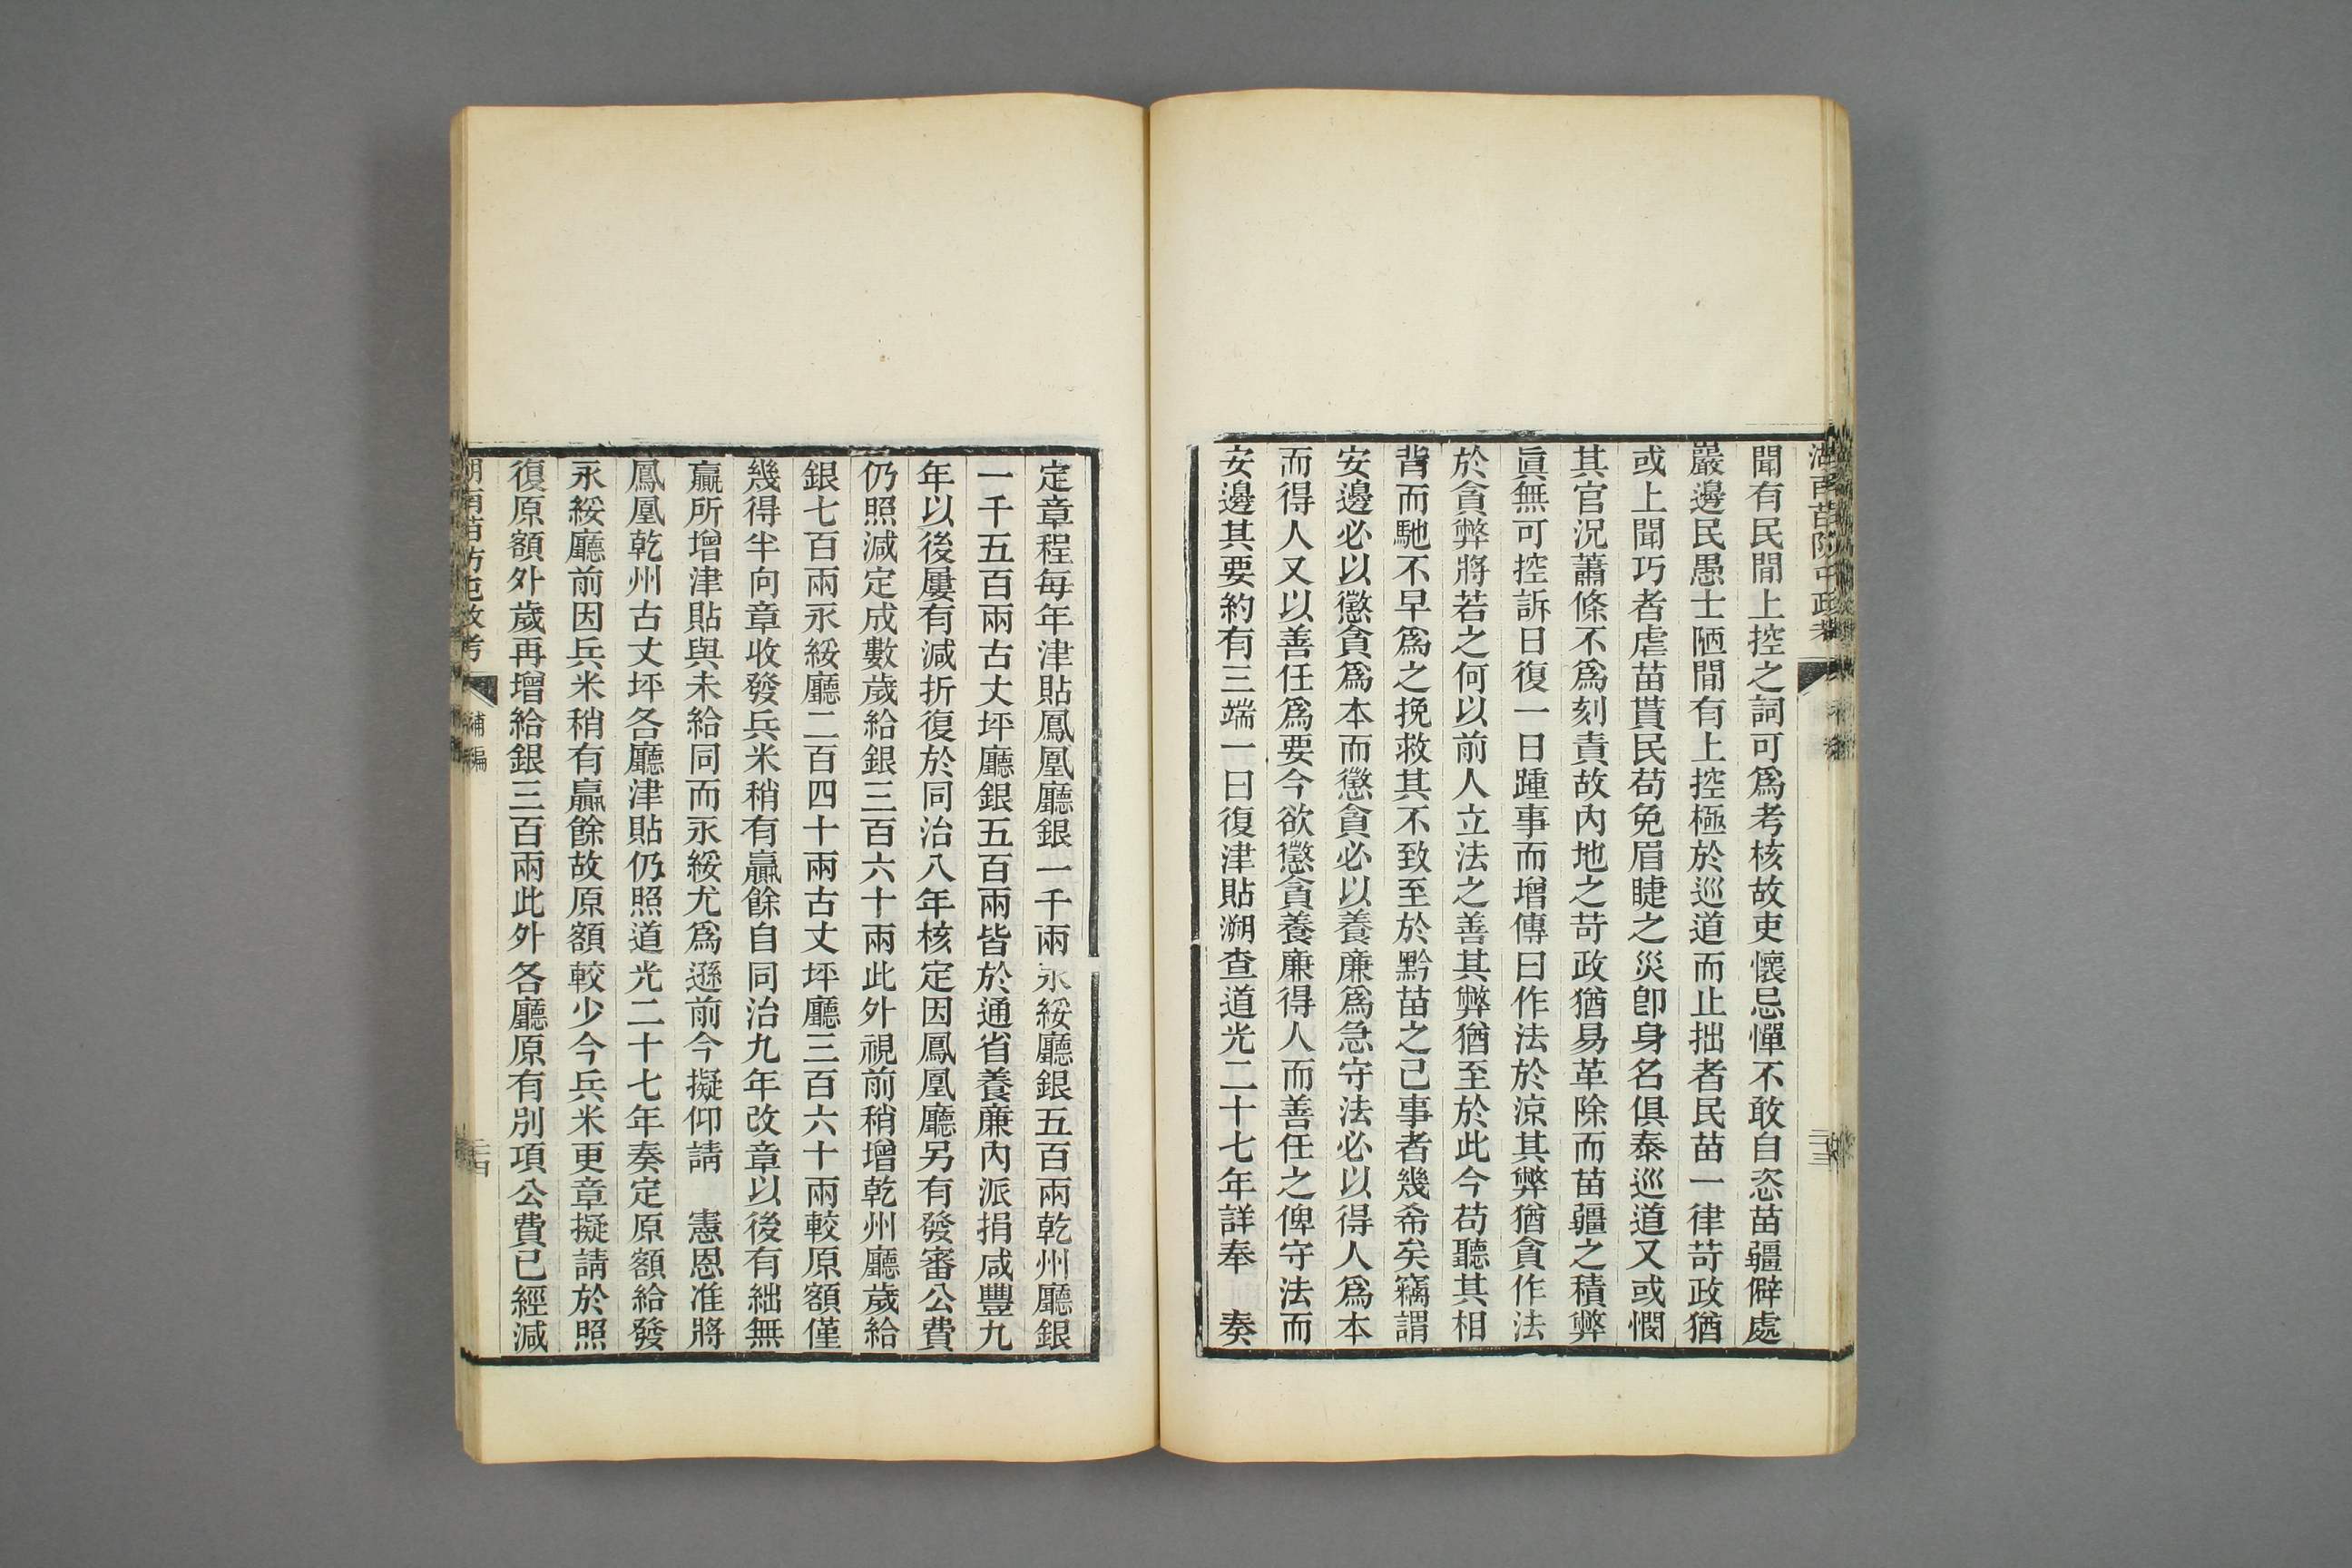 湖南苗防屯政考
聞有民間上控之詞可爲考核故吏懷忌憚不敢自恣苗疆僻處
嚴邊民愚士陋間有上控極於巡道而止拙者民苗一律苛政猶
或上聞巧者虐苗貰民苟免眉睫之災卽身名俱泰巡道又或憫
其官況蕭條不爲刻責故內地之苛政猶易革除而苗疆之積弊
眞無可控訴日復一日踵事而增傳曰作法於涼其弊猶貪作法
於貪弊將若之何以前人立法之善其弊猶至於此今苟聽其相
背而馳不早爲之挽救其不致至於黔苗之己事者幾希矣竊謂
安邊必以懲貪爲本而懲貪必以養廉爲急守法必以得人爲本
而得人又以善任爲要今欲懲貪養廉得人而善任之俾守法而
安邊其要約有三端一曰復津貼溯查道光二十七年詳奉　奏
定章程每年津貼鳳凰廳銀一千兩永綏廳銀五百兩乾州廳銀
一千五百兩古丈坪廳銀五百兩皆於通省養廉內派捐咸豐九
年以後屢有減折復於同治八年核定因鳳凰廳另有發審公費
仍照減定成數歲給銀三百六十兩此外視前稍增乾州廳歲給
銀七百兩永綏廳二百四十兩古丈坪廳三百六十兩較原額僅
幾得半向章收發兵米稍有贏餘自同治九年改章以後有絀無
贏所增津貼與未給同而永綏尤爲遜前今擬仰請　憲恩准將
鳳凰乾州古丈坪各廳津貼仍照道光二十七年奏定原額給發
永綏廳前因兵米稍有贏餘故原額較少今兵米更章擬請於照
復原額外歲再增給銀三百兩此外各廳原有別項公費已經減
湖南苗防屯政考
補編
二十四